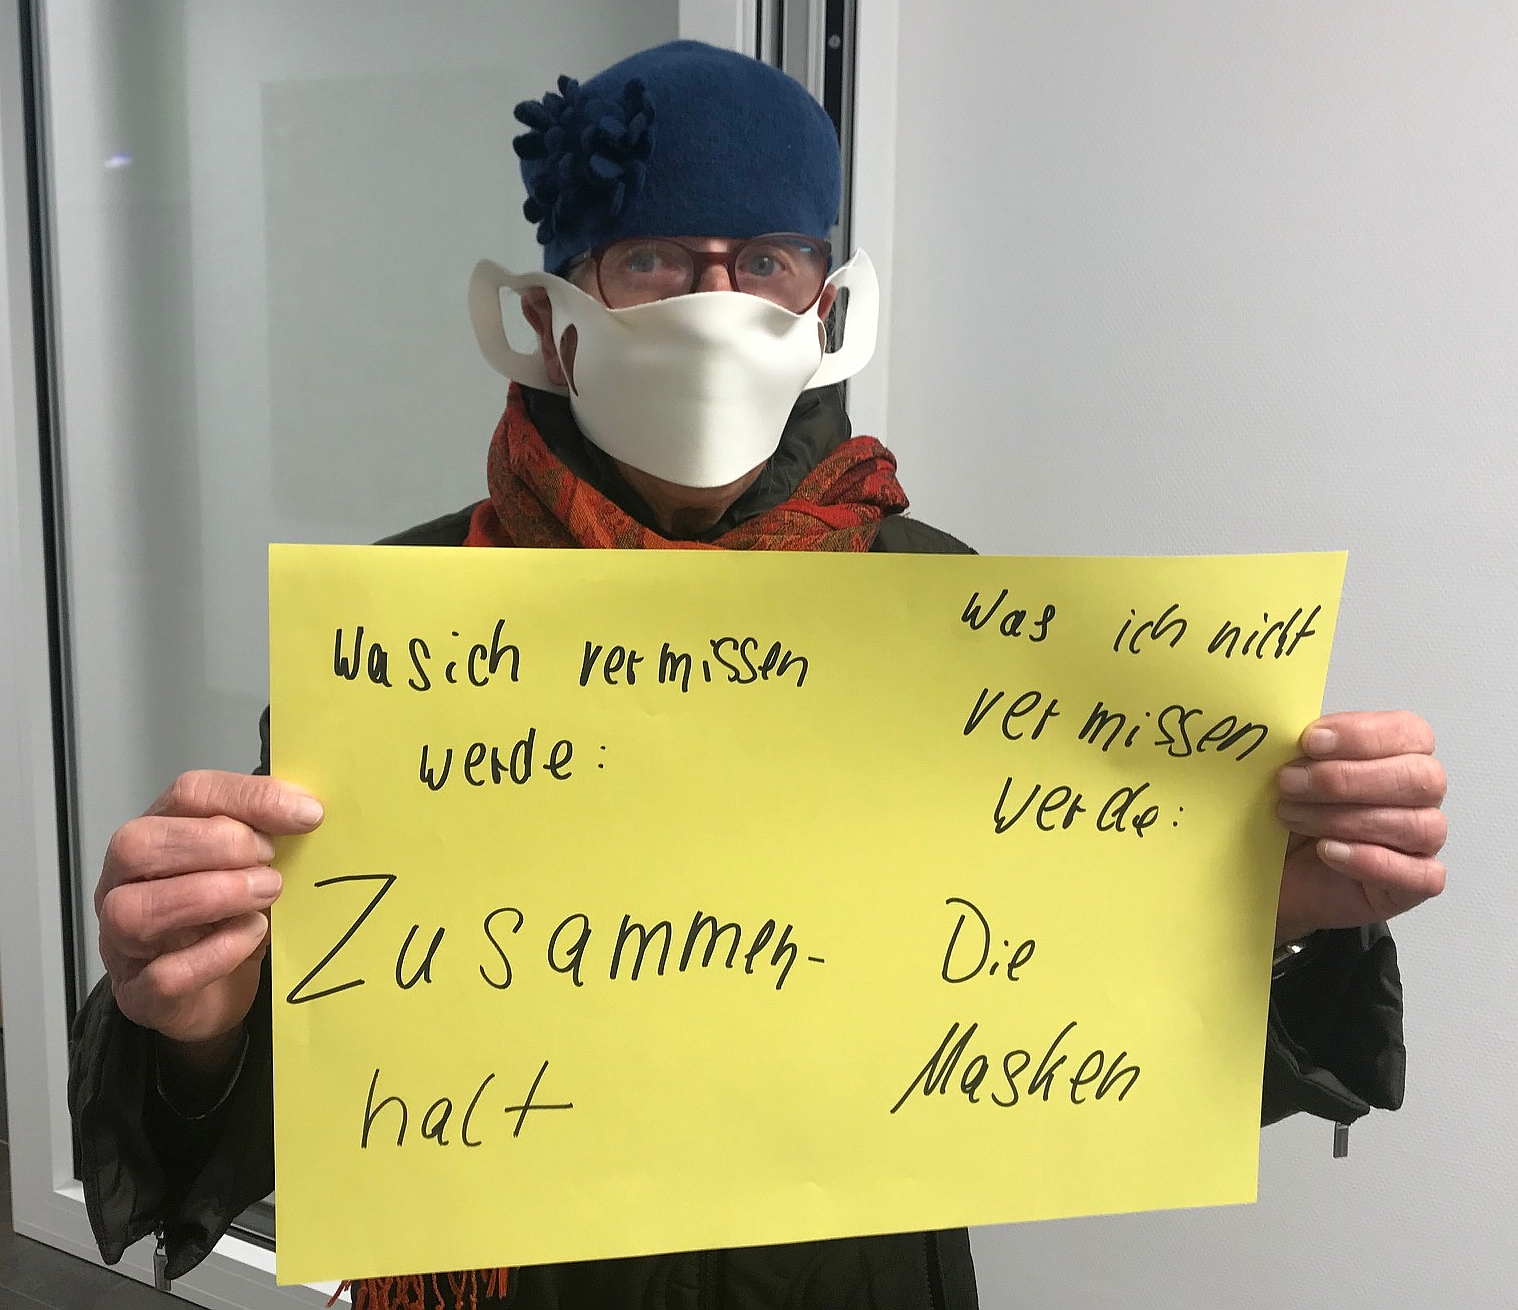 Was ich vermissen
werde:
Zusammen-
halt
Was ich nicht
vermissen
werde:
Die
Masken